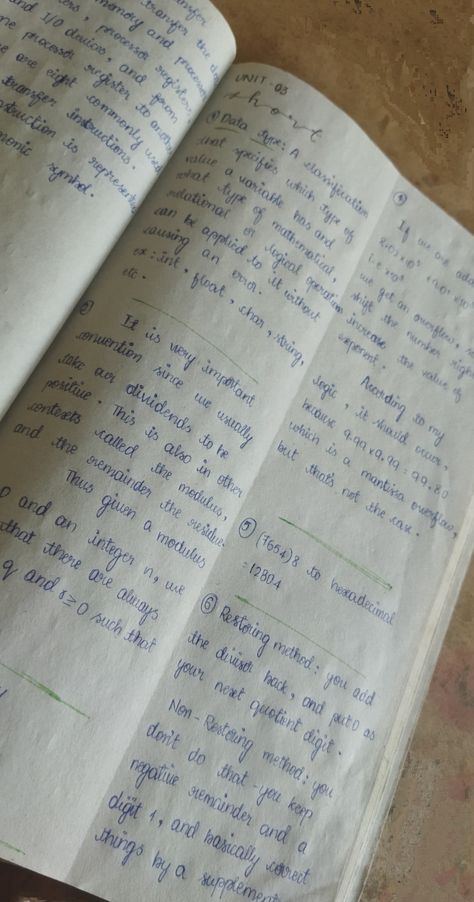 transfer
transfer the da
memory and processor
ters, processor registers
and I/O devices, and from
one processor register to anothe
are eight commonly used
transfer instructions.
struction is represented
monic symbol.
UNIT - 03
short
① Data type: A classification
that specifies which type of
value a variable has and
what type of mathematical,
relational or logical operation
can be applied to it without
causing an error.
ex: int, float, char, string,
etc.
It is very important
convention since we usually
take our dividends to be
positive. This is also in other
contexts called the modulus,
and the remainder the residue.
Thus given a modulus
D and an integer n, we
that there are always
q and r ≥ 0 such that
If we are add
i.e.
we get an overflow,
shift the number right
increase the value of
exponent.
According to my
logic, it should occur,
because 9.99 x 9.99 = 99.80
which is a mantissa overflow,
but that's not the case.
⑤ (7654)8 to hexadecimal
= 12804
⑥ Restoring method: you add
the divisor back, and put 0 as
your next quotient digit.
Non-Restoring method: you
don't do that - you keep
negative remainder and a
digit 1, and basically correct
things by a supplement